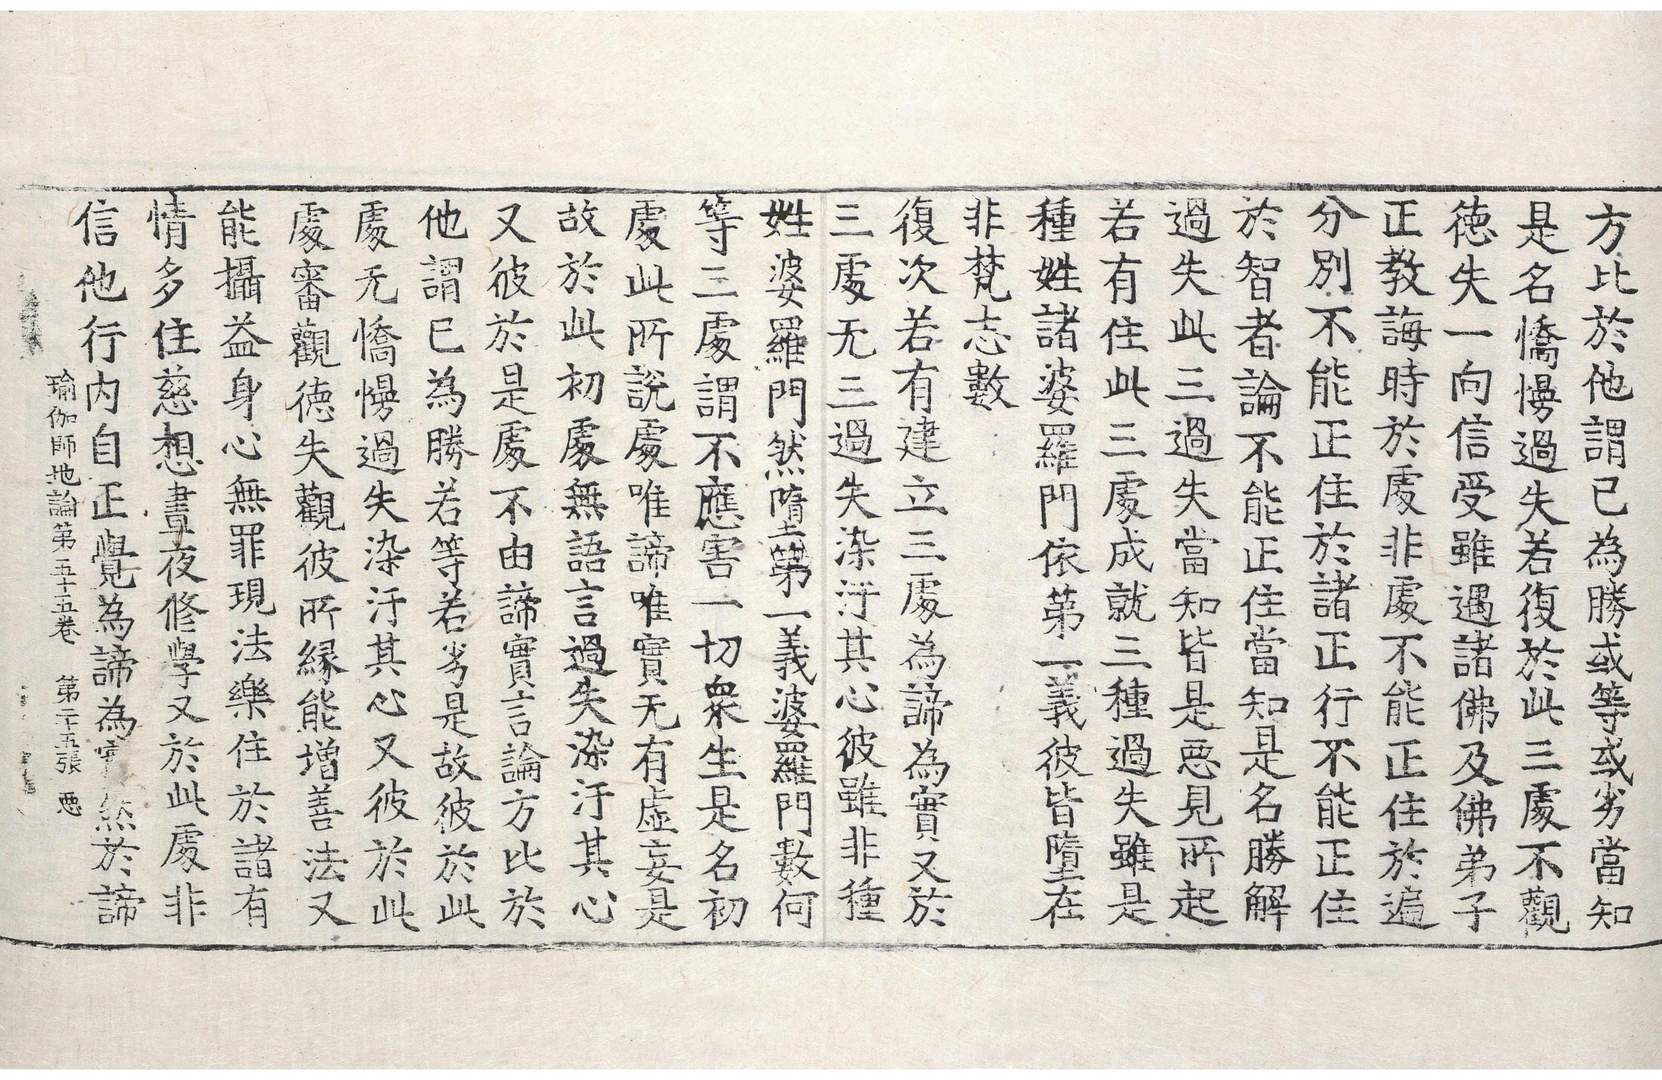 方比於他謂己為勝或等或劣當知
是名憍慢過失若復於此三處不觀
德失一向信受雖遇諸佛及佛弟子
正教誨時於處非處不能正住於遍
分別不能正住於諸正行不能正住
於智者論不能正住當知是名勝解
過失此三過失當知皆是惡見所起
若有住此三處成就三種過失雖是
種姓諸婆羅門依第一義彼皆墮在
非梵志數
復次若有建立三處為諦為實又於
三處无三過失染汙其心彼雖非種
姓婆羅門然墮第一義婆羅門數何
等三處謂不應害一切衆生是名初
處此所說處唯諦唯實无有虛妄是
故於此初處無語言過失染汙其心
又彼於是處不由諦實言論方比於
他謂己為勝若等若劣是故彼於此
處无憍慢過失染汙其心又彼於此
處審觀德失觀彼所緣能增善法又
能攝益身心無罪現法樂住於諸有
情多住慈想晝夜修學又於此處非
信他行內自正覺為諦為實然於諦
瑜伽師地論第五十五卷 第二十五張 惡